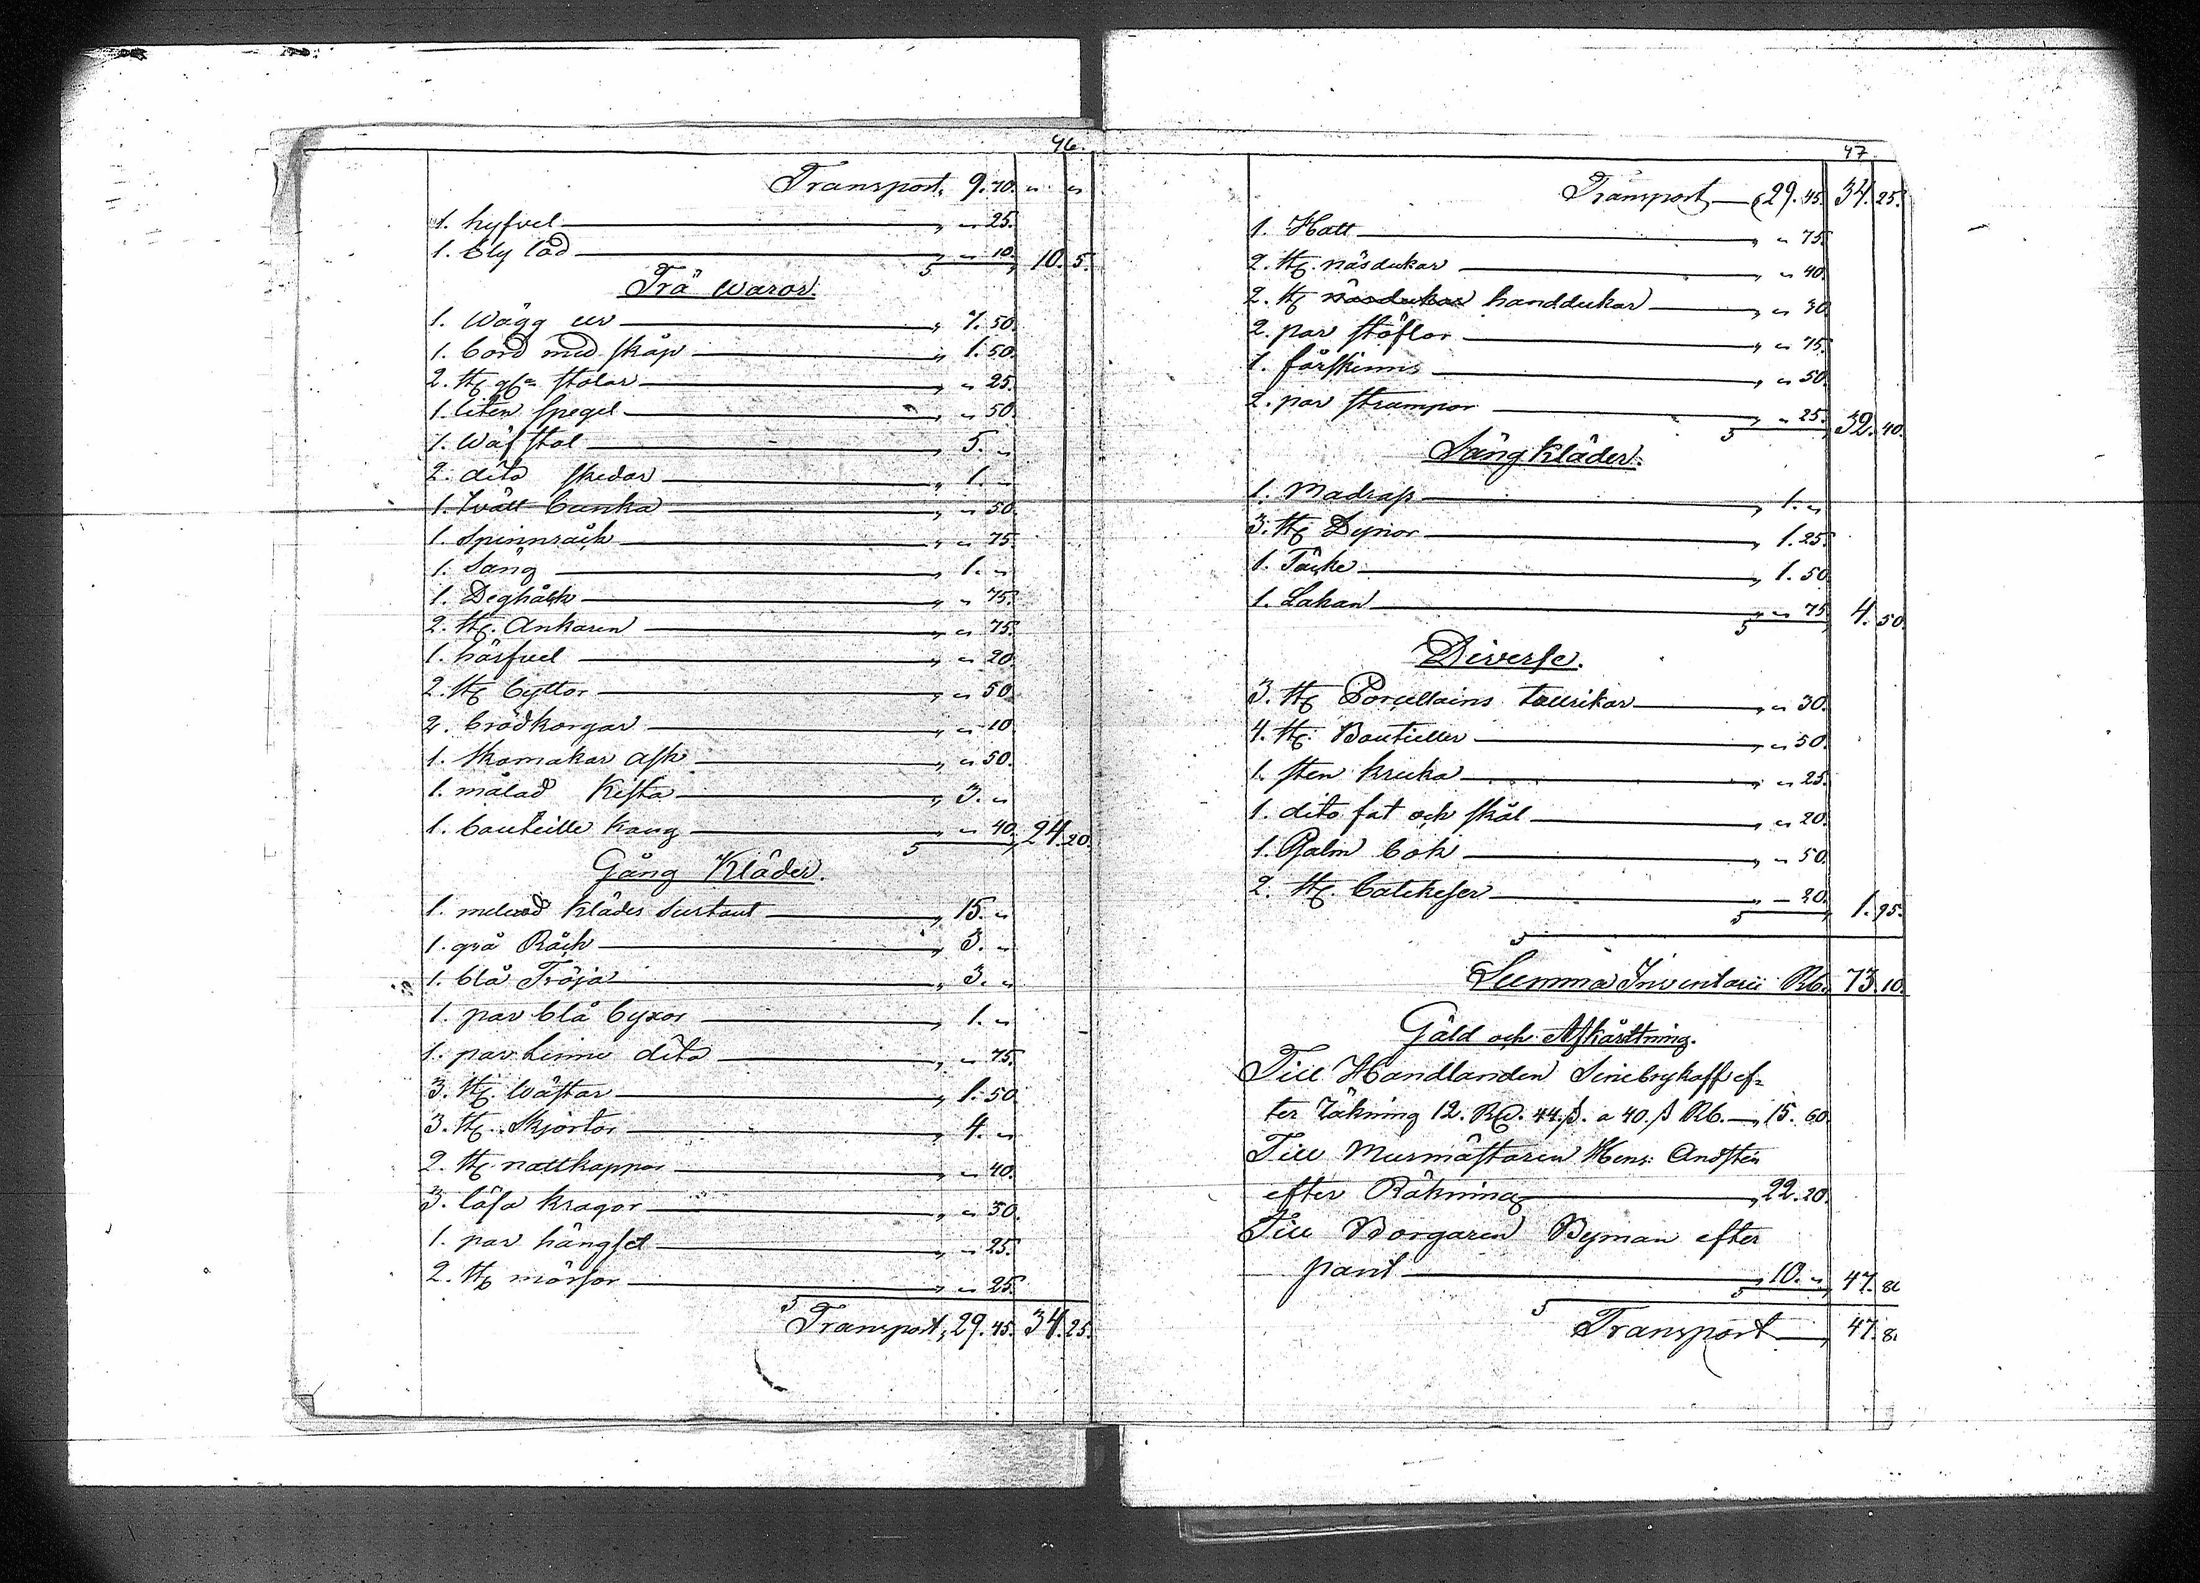 46.
Transport, 9. 70. " "
1. hyfvel " " 25.
1. bly låd " " 10. 10. 5.
Trä waror.
1. Wägg ur " 7. 50.
1. bord med skåp " 1. 50.
2. st. stolar " " 25.
1. liten spegel " " 50.
1. Wäf stol " 5. "
2. dito skedar " 1. "
1. tvätt bunka " " 50.
1. Spinnråck " " 75.
1. Säng " 1. "
1. Deghålk " " 75.
2. st. Ankaren " " 75.
1. härfvel " " 20.
2. st. byttor " " 50.
2. brödkorgar " " 10.
1. skomakar ask " " 50.
1. målad Kista " 3. "
1. bouteille korg " " 40. 24. 20.
Gång Kläder.
1. melerad klädes surtout " 15. "
1. grå Råck " 3. "
1. blå Tröja " 3. "
1. par blå byxor " 1. "
1. par linne dito " " 75.
3. st. wästar " 1. 50.
3. st. Skjortor " 4. "
2. st. nattkappor " " 40.
3. lösa kragar " " 30.
1. par hängsel " " 25.
2. st. mössor " " 25.
Transport, 29. 45. 34. 25.
47.
Transport 29. 45. 34. 25.
1. Hatt " " 75.
2. st. näsdukar " " 40.
2. st näsdukar handdukar " " 30.
2. par stöflor " " 75.
1. fårskinns " " 50.
2. par strumpor " " 25. 32. 40.
Sängkläder.
1. Madrass " 1. "
3. st. Dynor " 1. 25.
1. Täcke " 1. 50.
1. Lakan " " 75. 4. 50.
Diverse.
3. st. Porcellains tallrikar " " 30.
4. st. Boutieller " " 50.
1. sten kruka " " 25.
1. dito fat och skål " " 20.
1. Psalm bok " " 50.
2. st. Catekeser " " 20. 1. 95.
Summa Inventarii Rb. 73. 10.
Gäld och Afkårttning.
Till Handlanden Sinebrykoff ef=
ter räkning 12. Rd. 44. ß. a 40. ß Rb. 15. 60.
Till Murmästaren Hens: Andsten
efter Räkning 22. 20.
Till Borgaren Byman efter
pant " 10. " 47. 80
Transport 47. 8